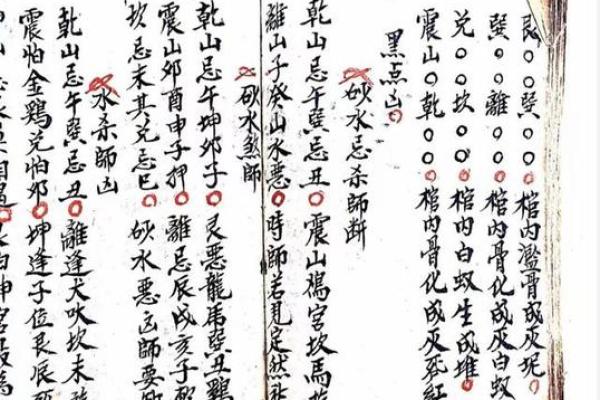 艮○○巽○○棺内濫骨成灰坭
巽○○離○○棺内骨化成灰白蚁
兑○○坎○○棺内白蚁生成堆
震山○乾○○棺内骨化成灰死
黑点凶○
砍水忌杀師断
乾山忌午巽忌丑○震山鴻宮坎馬
離山子癸山水悪○時師若見定然
砍水煞師
乾山忌午坤卯子○艮悪龍馬巽丑鷄
震山卯酉申子押○離忌辰戌亥子
坎忌未其兑忌巳○砍水悪凶師要
水杀師凶
乾山忌午巽忌丑○離逢犬吠坎未
震怕金鷄兑怕卯○坤逢子位艮